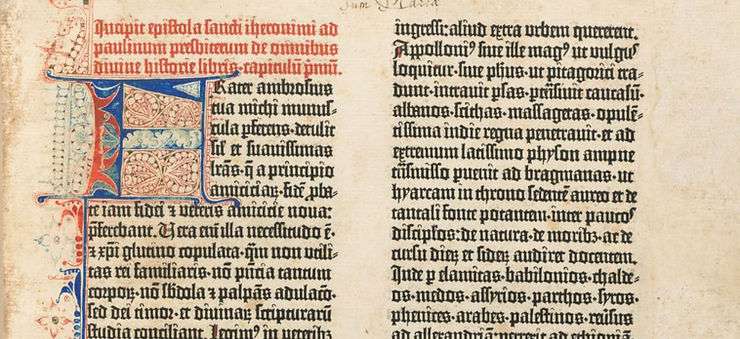 Incipit epistola sancti iheronimi ad
paulinum presbiterum de omnibus
divine historie libris. capitulū pmū.
FRater ambrosius
tua michi munus-
cula pferens. detulit
sil et suavissimas
lr̄as. q̄ a principio
amiciciaꝝ. fidē ꝓba-
te iam fidei ⁊ veteris amicicie nova:
p̄ferebant. Vera enī illa necessitudo ē.
⁊ xp̄i glutino copulata. qm̄ non utili-
tas rei familiaris. nō p̄ncia tantum
corpoꝝ. nō sb̄dola ⁊ palpās adulacō.
sed dei timor. et divinaꝝ scripturarū
studia conciliant. Legimꝰ in veteribꝫ
ingressi: aliud extra urbem quererent.
Appolloniꝰ sive ille magꝰ ut vulgꝰ
loquitur. sive ph̄us. ut pitagorici tra-
dunt. intravit p̄sas. p̄trāsivit caucasū.
albanos. scithas. massagetas. opulē-
tissima indie regna penetravit. et ad
extremum latissimo physon ampne
trāsmisso puenit ad bragmanas. ut
hyarcam in throno sedentē aureo et de
tantali fonte potantem. inter paucos
discipl̄os: de natura. de moribꝫ. ac de
cursu dieꝝ et sideꝝ audiret docentem.
Inde p elamitas. babilonios. chalde-
os. medos. assyrios. parthos. syros.
phenices. arabes. palestinos. reūsus
ad allexandriā: perrexit ad ethiopiā.